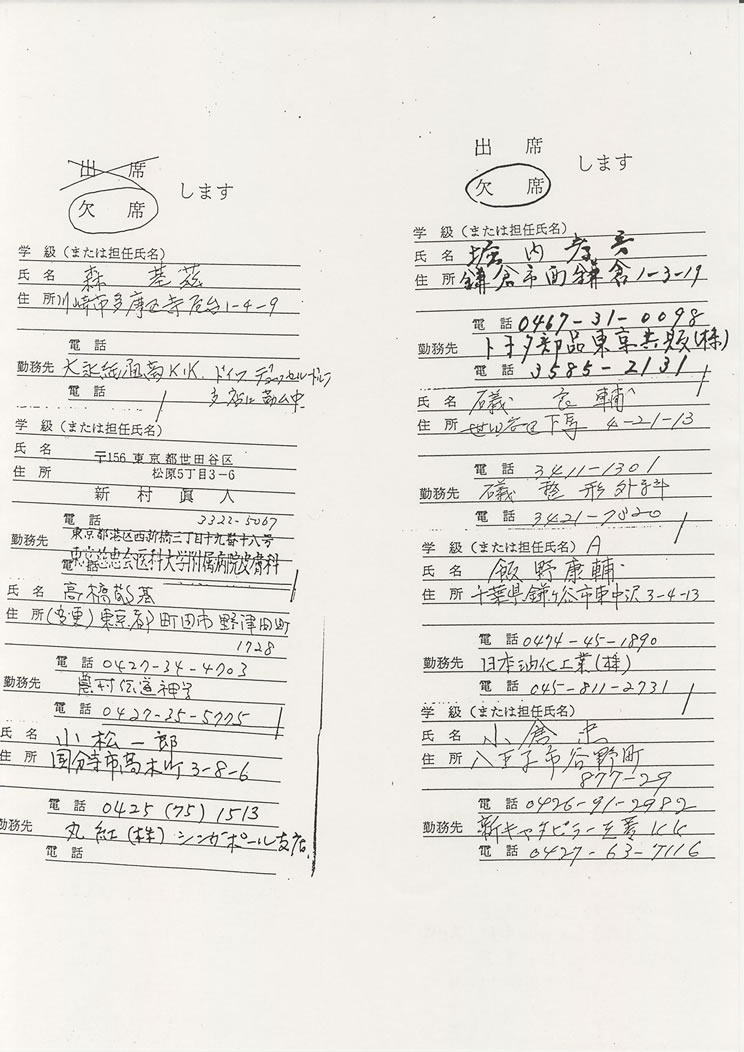 出 席
欠 席
します
学 級 (または担任氏名)
氏 名 森 基
住 所 川崎市多摩区寺尾台1-4-9
電 話
勤務先 K.K. ドイツ デュッセルドルフ
電 話 支店に勤ム中
学 級 (または担任氏名)
氏 名 〒156 東京都世田谷区
住 所 松原5丁目3-6
新 村 眞 人
電 話 3322-5067
勤務先 東京都港区西新橋三丁目十九番十八号
電 話 東京慈恵会医科大学附属病院皮膚科
氏 名 高橋敬基
住 所 (変更) 東京都町田市野津田町
1728
電 話 0427-34-4703
勤務先 農村伝道神学
電 話 0427-35-5775
氏 名 小松一郎
住 所 国分寺市高木町3-8-6
電 話 0425 (75) 1513
勤務先 丸紅(株) シンガポール支店
電 話
出 席
欠 席
します
学 級 (または担任氏名)
氏 名 堀 内
住 所 鎌倉市西鎌倉1-3-19
電 話 0467-31-0098
勤務先 トヨタ部品東京共販(株)
電 話 3585-2131
氏 名 磯 良 輔
住 所 世田谷区下馬 4-21-13
電 話 3411-1301
勤務先 磯 整 形 外科
電 話 3421-7820
学 級 (または担任氏名) A
氏 名 飯野康輔
住 所 千葉県鎌ヶ谷市東中沢3-4-13
電 話 0474-45-1890
勤務先 日本油化工業(株)
電 話 045-811-2731
学 級 (または担任氏名)
氏 名 小倉 忠
住 所 八王子市谷野町
877-29
電 話 0426-91-2982
勤務先 新キャタピラー三菱KK
電 話 0427-63-7116